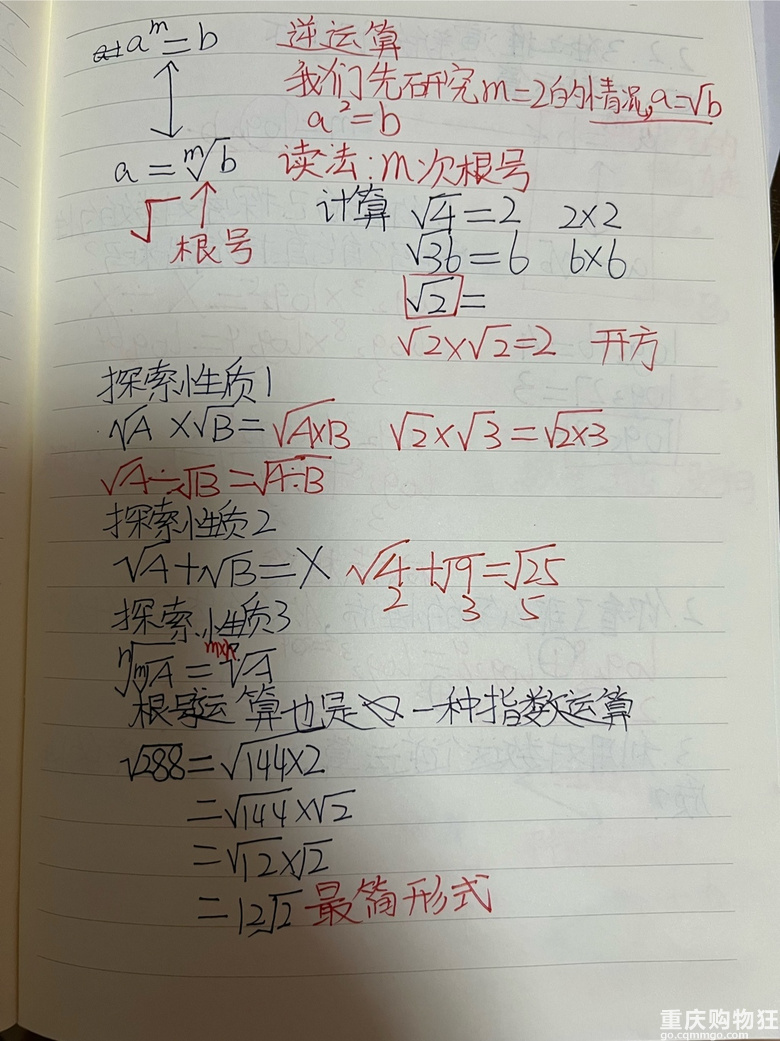 a^m=b 逆运算
我们先研究m=2的情况,a=√b
a²=b
a=ᵐ√b 读法:m次根号
√ ↑ 计算 √4=2 2×2
根号 √36=6 6×6
√2=
√2×√2=2 开方
探索性质1
√A×√B=√A×B √2×√3=√2×3
√A÷√B=√A÷B
探索性质2
√A+√B=X √4+√9=√25
2 3 5
探索性质3
ⁿ√ᵐ√A=ᵐˣⁿ√A
根号运算也是一种指数运算
√288=√144×2
=√144×√2
=√12×√2
=12√2 最简形式
重庆购物狂
go.cqmmgo.com